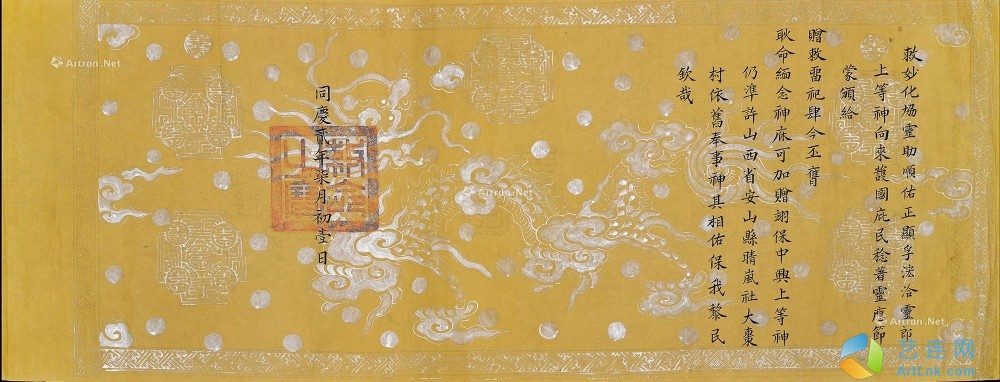 敕妙化場靈助順佑正顯孚法洽靈即
上等神向來護國庇民稔著靈應節
蒙頒給
贈敕畱祀肆今丕膺
耿命緬念神庥可加贈翊保中興上等神
仍準許山西省安山縣晴嵐社大棗
村依舊奉事神其相佑保我黎民
欽哉
同慶貳年柒月初壹日
Artron.Net
Artron.Net
Artron.Net
Artron.Net
艺连网
ArtLnk.com